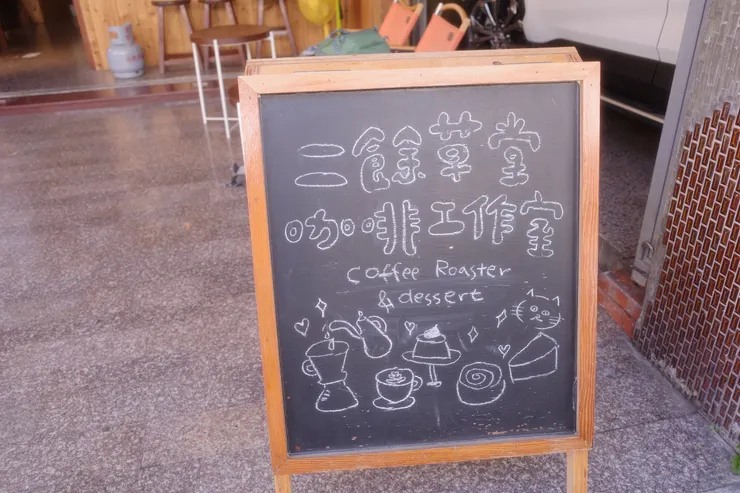 二餘草堂
咖啡工作室
Coffee Roaster
& dessert